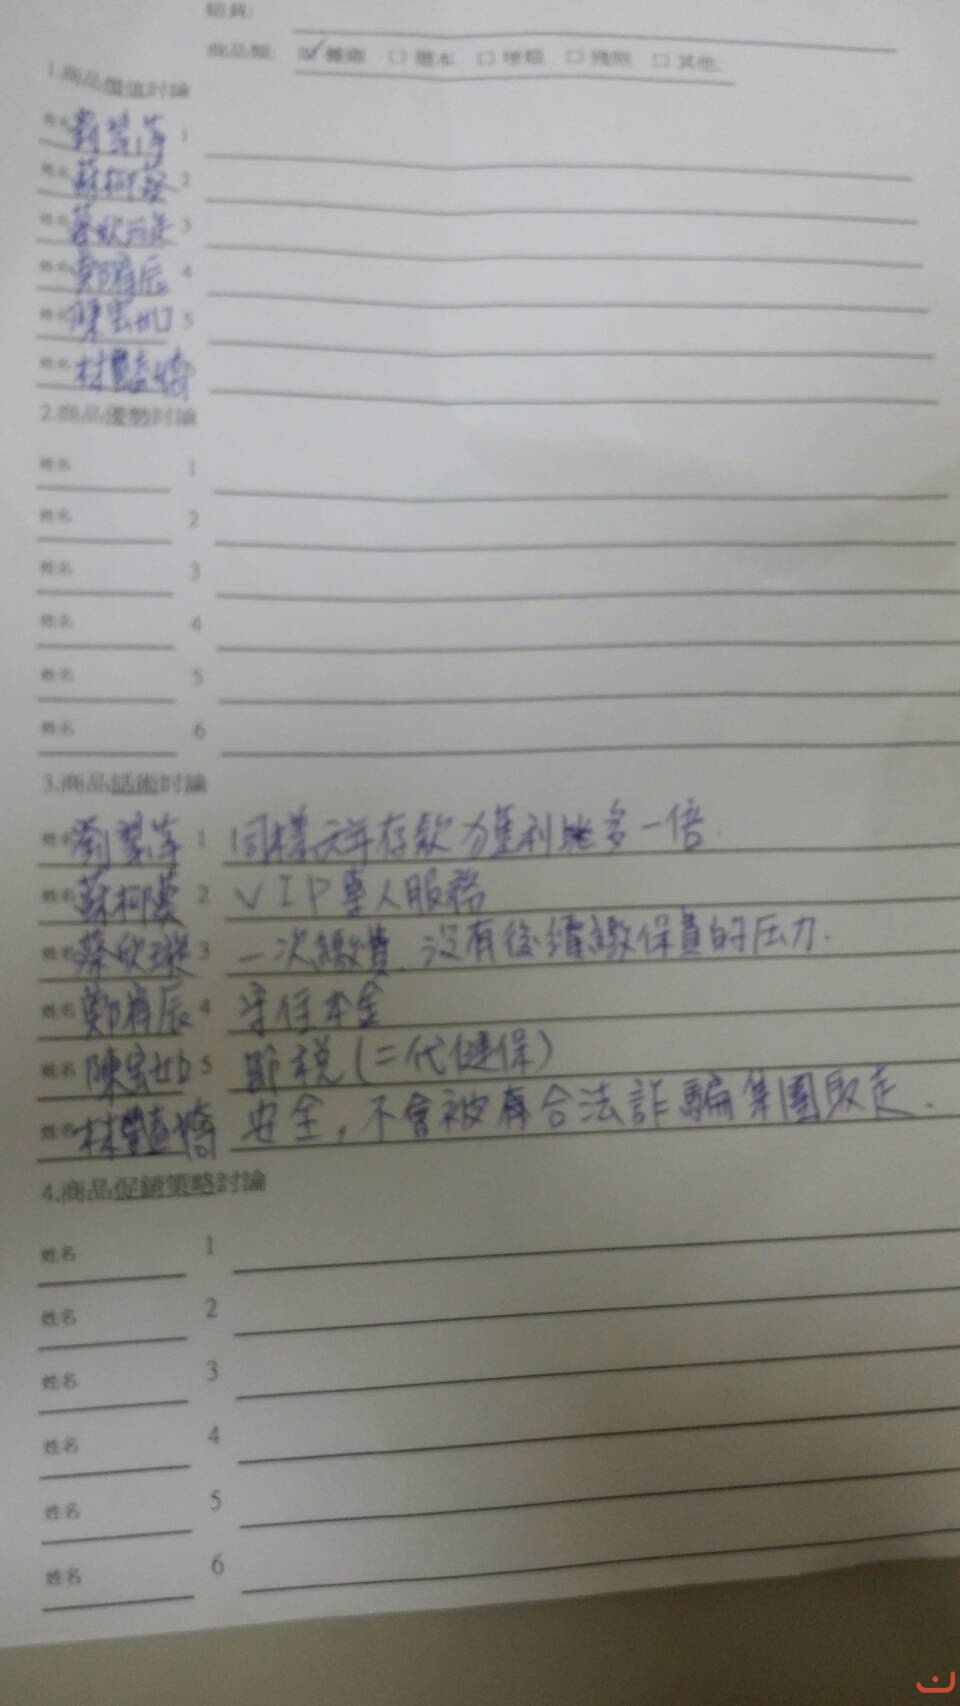 組員:
商品類: ☑養 □ 還本 □ 增額 □ 殘照 □ 其他:
1.商品價值討論
姓名 1
姓名 蘇柳 2
姓名 蔡欣 3
姓名 鄭宥辰 4
姓名 陳宏如 5
姓名 林豔嬌 6
2.商品優勢討論
姓名 1
姓名 2
姓名 3
姓名 4
姓名 5
姓名 6
3.商品話術討論
姓名 劉 萍 1 同樣 存款 獲利 多一倍.
姓名 蘇柳 2 VIP專人服務
姓名 蔡欣璇 3 一次繳費. 沒有後續繳保費的压力.
姓名 鄭宥辰 4 守住本金
姓名 陳宏如 5 節稅(二代健保)
姓名 林豔嬌 安全, 不會被 合法詐騙集團取走.
4.商品促銷策略討論
姓名 1
姓名 2
姓名 3
姓名 4
姓名 5
姓名 6